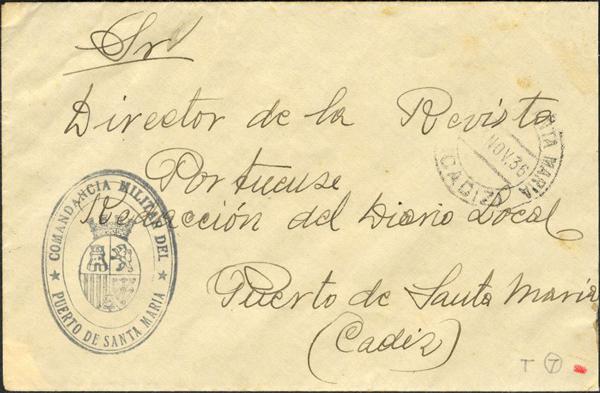 Sr
Director de la Revista
Portuense
Redacción del Diario Local
Puerto de Santa María
(Cadiz)
COMANDANCIA MILITAR DEL
PUERTO DE SANTA MARIA
NTA MARIA
NOV.36
CADIZ
T 7